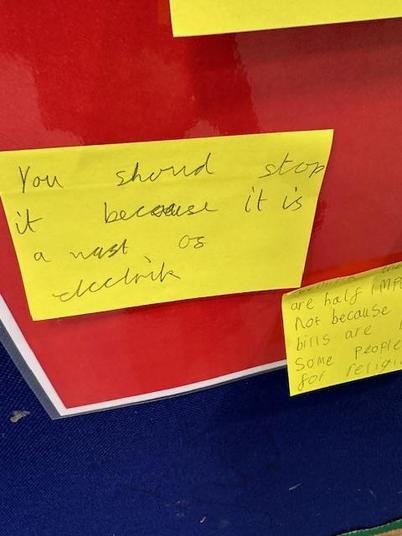 You shoud stop
it because it is
a wast os
elecktrik
are half IMP
Not because
bills are
Some People
for religi